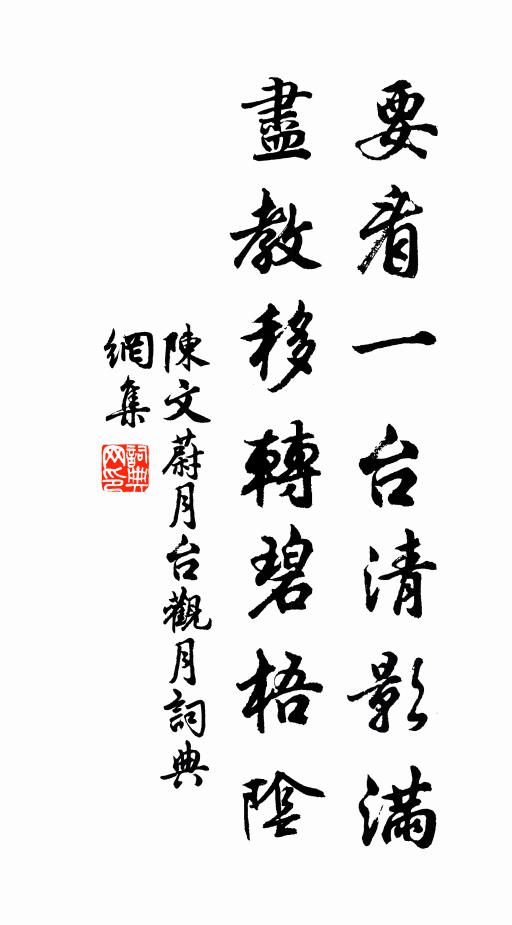 要看一台清影滿
盡教移轉碧梧陰
陳文蔚月台觀月詞典
網集
詞典網印